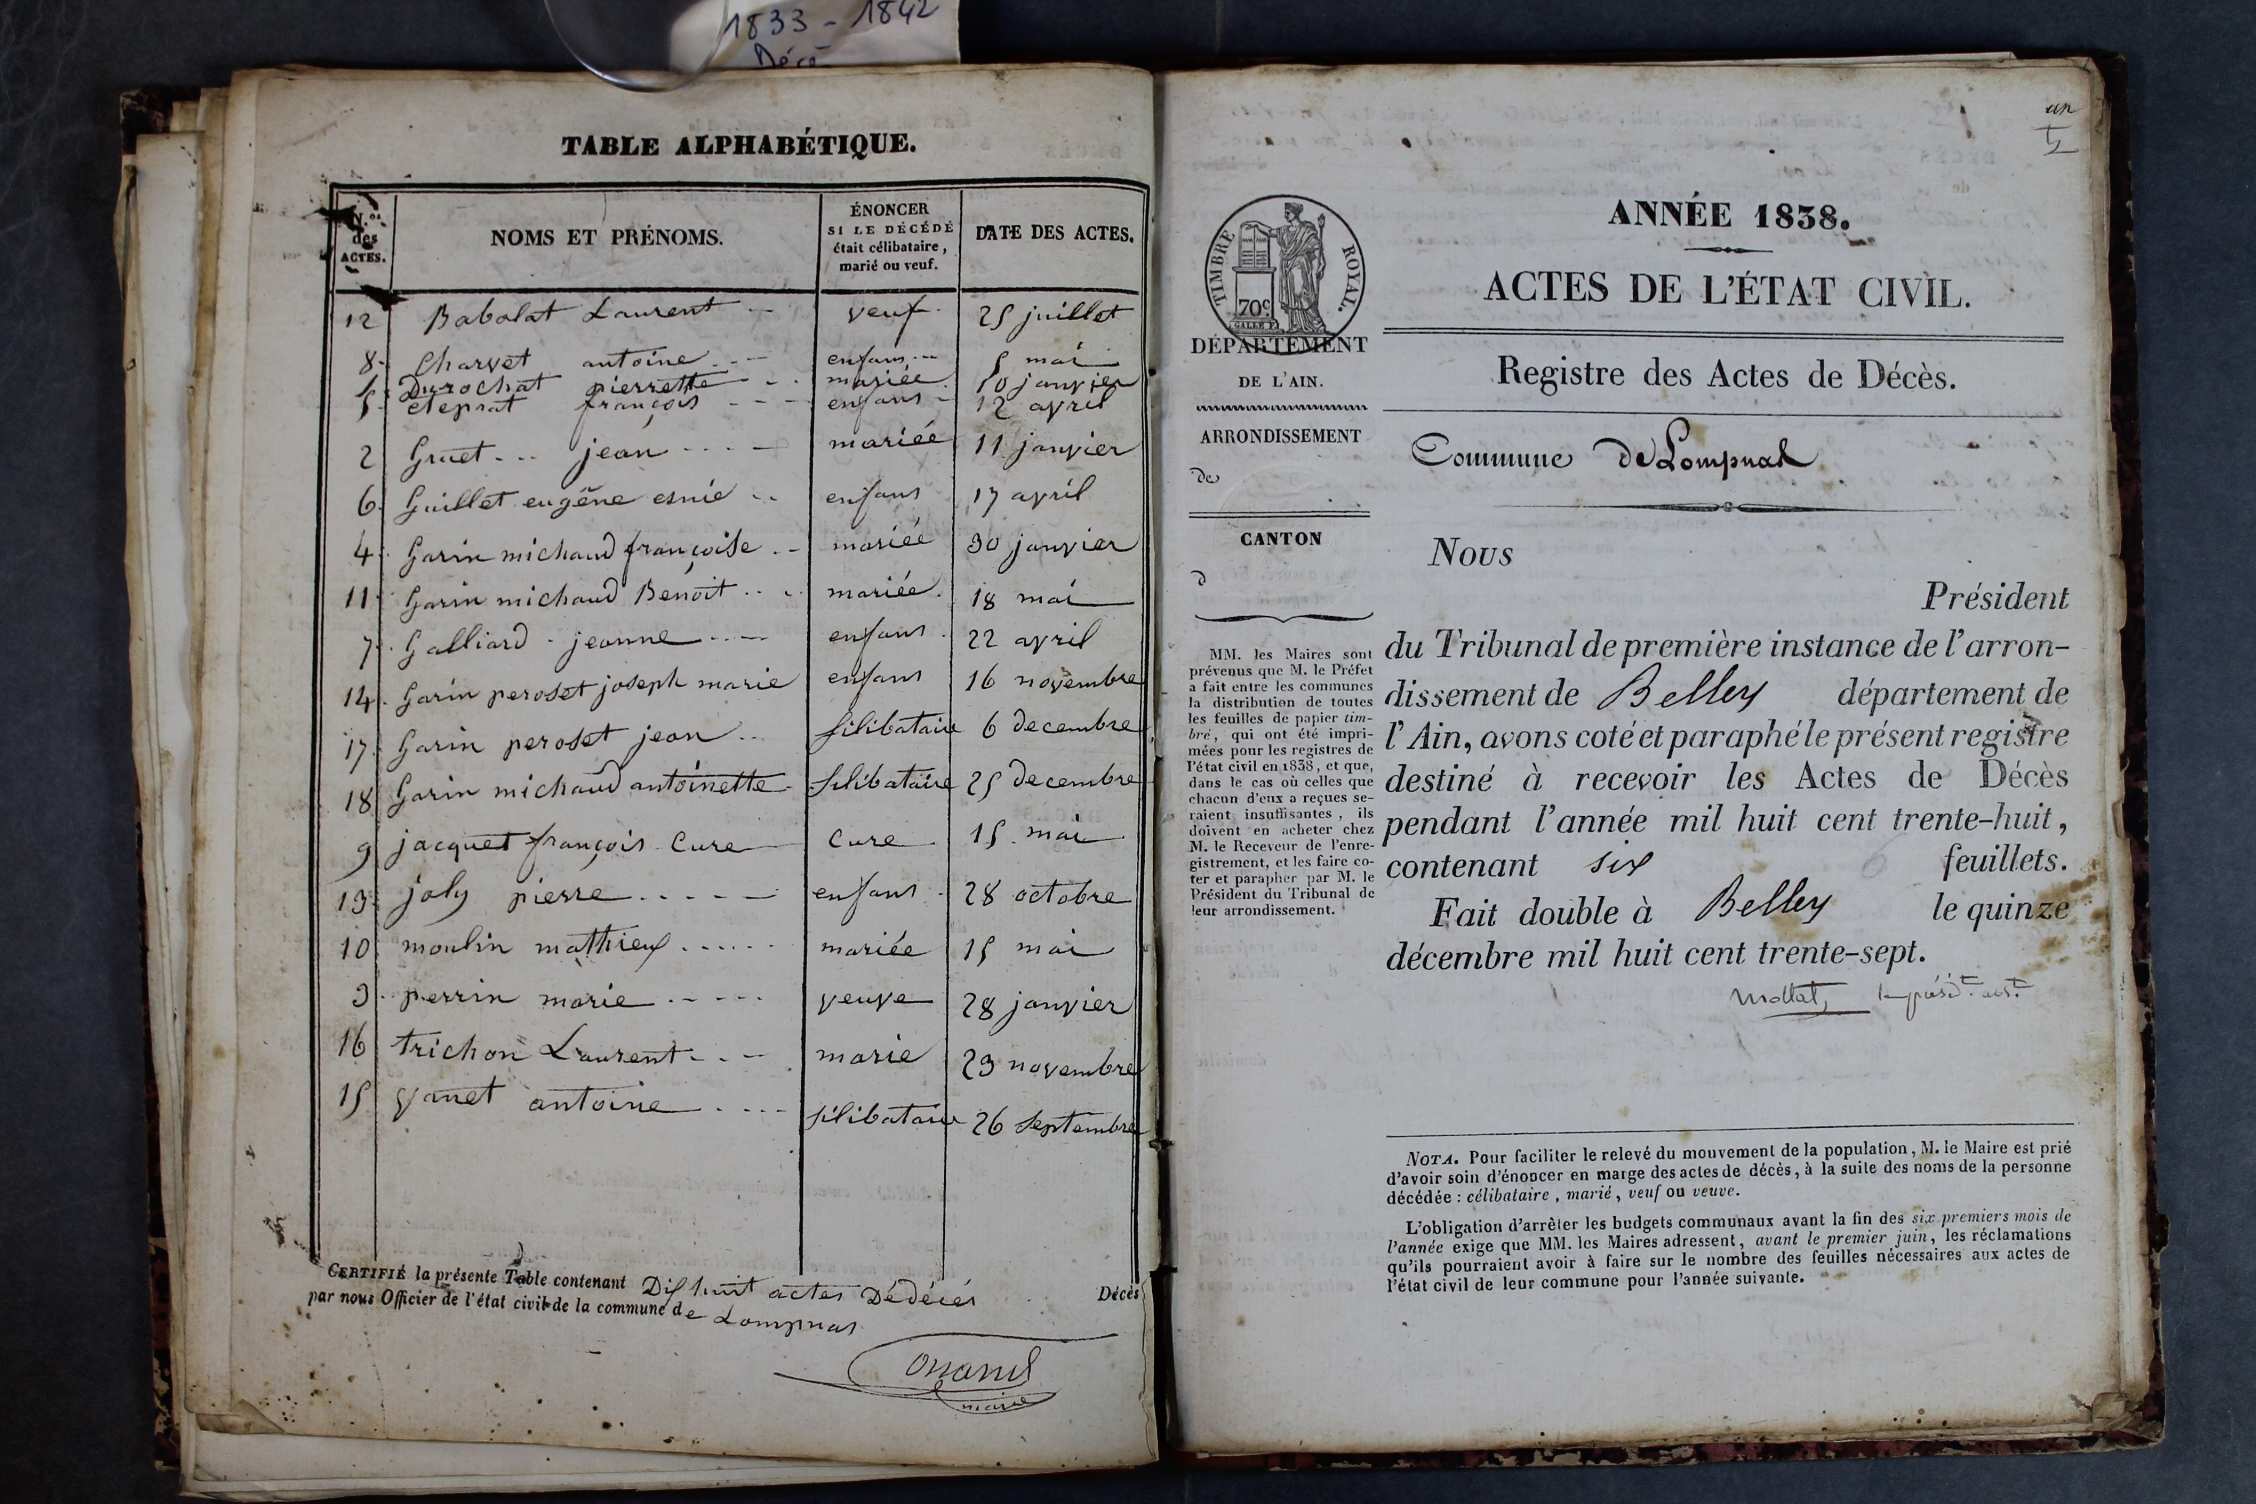 1833 - 1842
Décè
TABLE ALPHABÉTIQUE.
N.os des ACTES.
NOMS ET PRÉNOMS.
ÉNONCER SI LE DÉCÉDÉ était célibataire, marié ou veuf.
DATE DES ACTES.
12 Babolat Laurent veuf 25 juillet
8 Charvet antoine enfans 5 mai
1 Durochat pierrette mariée 10 janvier
5 françois enfans 12 avril
2 Gruet jean mariée 11 janvier
6 Guillet eugêne esnie enfans 17 avril
4 Garin michaud françoise mariée 30 janvier
11 Garin michaud Benoit mariée 18 mai
7 Galliard jeanne enfans 22 avril
14 Garin peroset joseph marie enfans 16 novembre
17 Garin peroset jean silibataire 6 decembre
18 Garin michaud antoinette silibataire 25 decembre
9 jacquet françois Cure Cure 15 mai
13 joly pierre enfans 28 octobre
10 moulin mathieux mariée 15 mai
3 perrin marie veuve 28 janvier
16 trichon Laurent marie 23 novembre
15 Vanet antoine silibataire 26 septembre
CERTIFIÉ la présente Table contenant Dix huit actes Dédécés Décès
par nous Officier de l'état civil de la commune de Lompnas
maire
un
TIMBRE ROYAL.
70c
DÉPARTEMENT
DE L'AIN.
ARRONDISSEMENT
de
CANTON
d
MM. les Maires sont
prévenus que M. le Préfet
a fait entre les communes
la distribution de toutes
les feuilles de papier tim-
bré, qui ont été impri-
mées pour les registres de
l'état civil en 1838, et que,
dans le cas où celles que
chacun d'eux a reçues se-
raient insuffisantes, ils
doivent en acheter chez
M. le Receveur de l'enre-
gistrement, et les faire co-
ter et parapher par M. le
Président du Tribunal de
leur arrondissement.
ANNÉE 1838.
ACTES DE L'ÉTAT CIVIL.
Registre des Actes de Décès.
Commune de Lompnas
Nous
Président
du Tribunal de première instance de l'arron-
dissement de Belley département de
l'Ain, avons coté et paraphé le présent registre
destiné à recevoir les Actes de Décès
pendant l'année mil huit cent trente-huit,
contenant six 6 feuillets.
Fait double à Belley le quinze
décembre mil huit cent trente-sept.
NOTA. Pour faciliter le relevé du mouvement de la population, M. le Maire est prié
d'avoir soin d'énoncer en marge des actes de décès, à la suite des noms de la personne
décédée : célibataire, marié, veuf ou veuve.
L'obligation d'arrêter les budgets communaux avant la fin des six premiers mois de
l'année exige que MM. les Maires adressent, avant le premier juin, les réclamations
qu'ils pourraient avoir à faire sur le nombre des feuilles nécessaires aux actes de
l'état civil de leur commune pour l'année suivante.